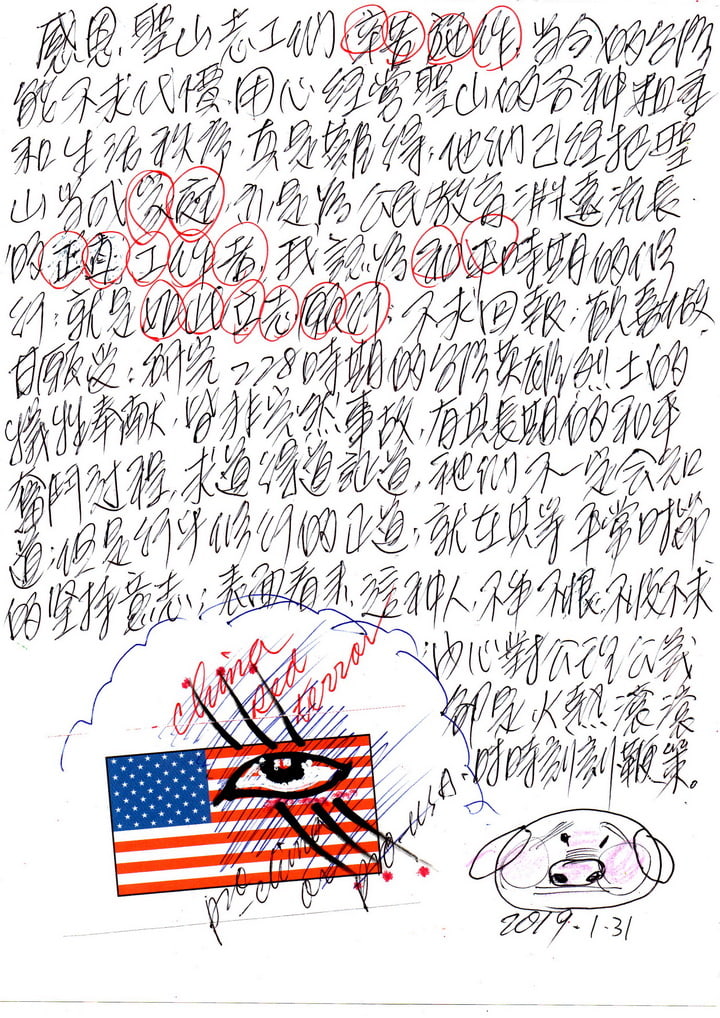 感恩聖山志工們辛苦施作,當今的台灣
能不求代價,用心經營聖山的各種程序
和生活秩序,真是難得,他們已經把聖
山當成家庭,引為公民教育淵遠流長
的正與工作者,我認為和平時期的修
行:就是如此立志願行:不求回報:歡喜做
甘願受:研究228時期的台灣英雄烈士的
犧牲奉獻,皆非突然事故,有其長期的和平
奮鬥過程,求道得道證道,祂們不一定會知
道:但是行牛修行的正道,就在其等平常時節
的坚持意志:表面看來,這种人,不爭不恨不伎不求
:內心對公理公義
卻是火熱滾滾
時時刻刻鞭策。
china
red
terror
pro-china
or pro-USA.
2019.1.31